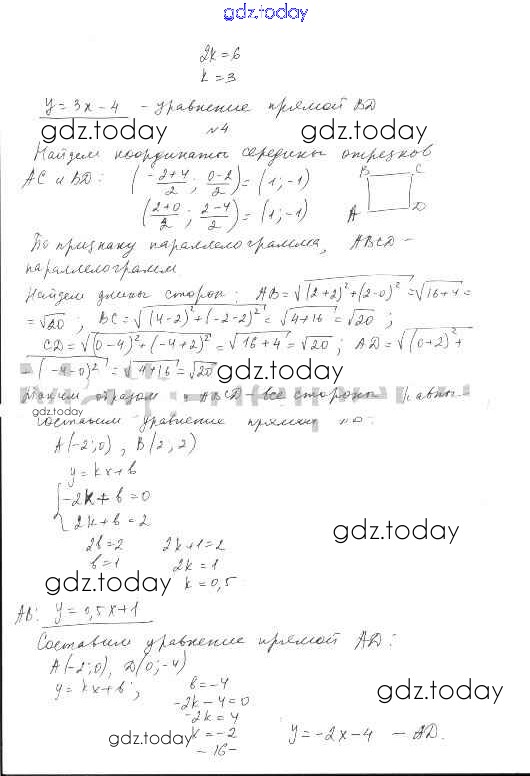 gdz.today
2k = 6
k = 3
y = 3x - 4 - уравнение прямой BD
gdz.today gdz.today
N4
Найдем координаты середины отрезков
AC и BD: (-2+4/2; 0-2/2) = (1; -1)
B C
(2+0/2; 2-4/2) = (1; -1)
A D
По признаку параллелограмма, ABCD -
параллелограмм
Найдем длины сторон: AB = √(2+2)²+(2-0)² = √16+4 =
= √20; BC = √(4-2)²+(-2-2)² = √4+16 = √20;
CD = √(0-4)²+(-4+2)² = √16+4 = √20; AD = √(0+2)²+
(-4-0)² = √4+16 = √20
gdz.today
образом ABCD - все стороны равны
gdz.today
Составим уравнение прямой
A(-2; 0), B(2; 2)
y = kx + b
-2k + b = 0
2k + b = 2
gdz.today
2b = 2 2k + 1 = 2
b = 1 2k = 1
gdz.today
k = 0,5
AB: y = 0,5x + 1
Составим уравнение прямой AD:
A(-2; 0), D(0; -4)
y = kx + b; b = -4
gdz.today
-2k - 4 = 0
-2k = 4
gdz.today
k = -2 y = -2x - 4 - AD.
- 16 -